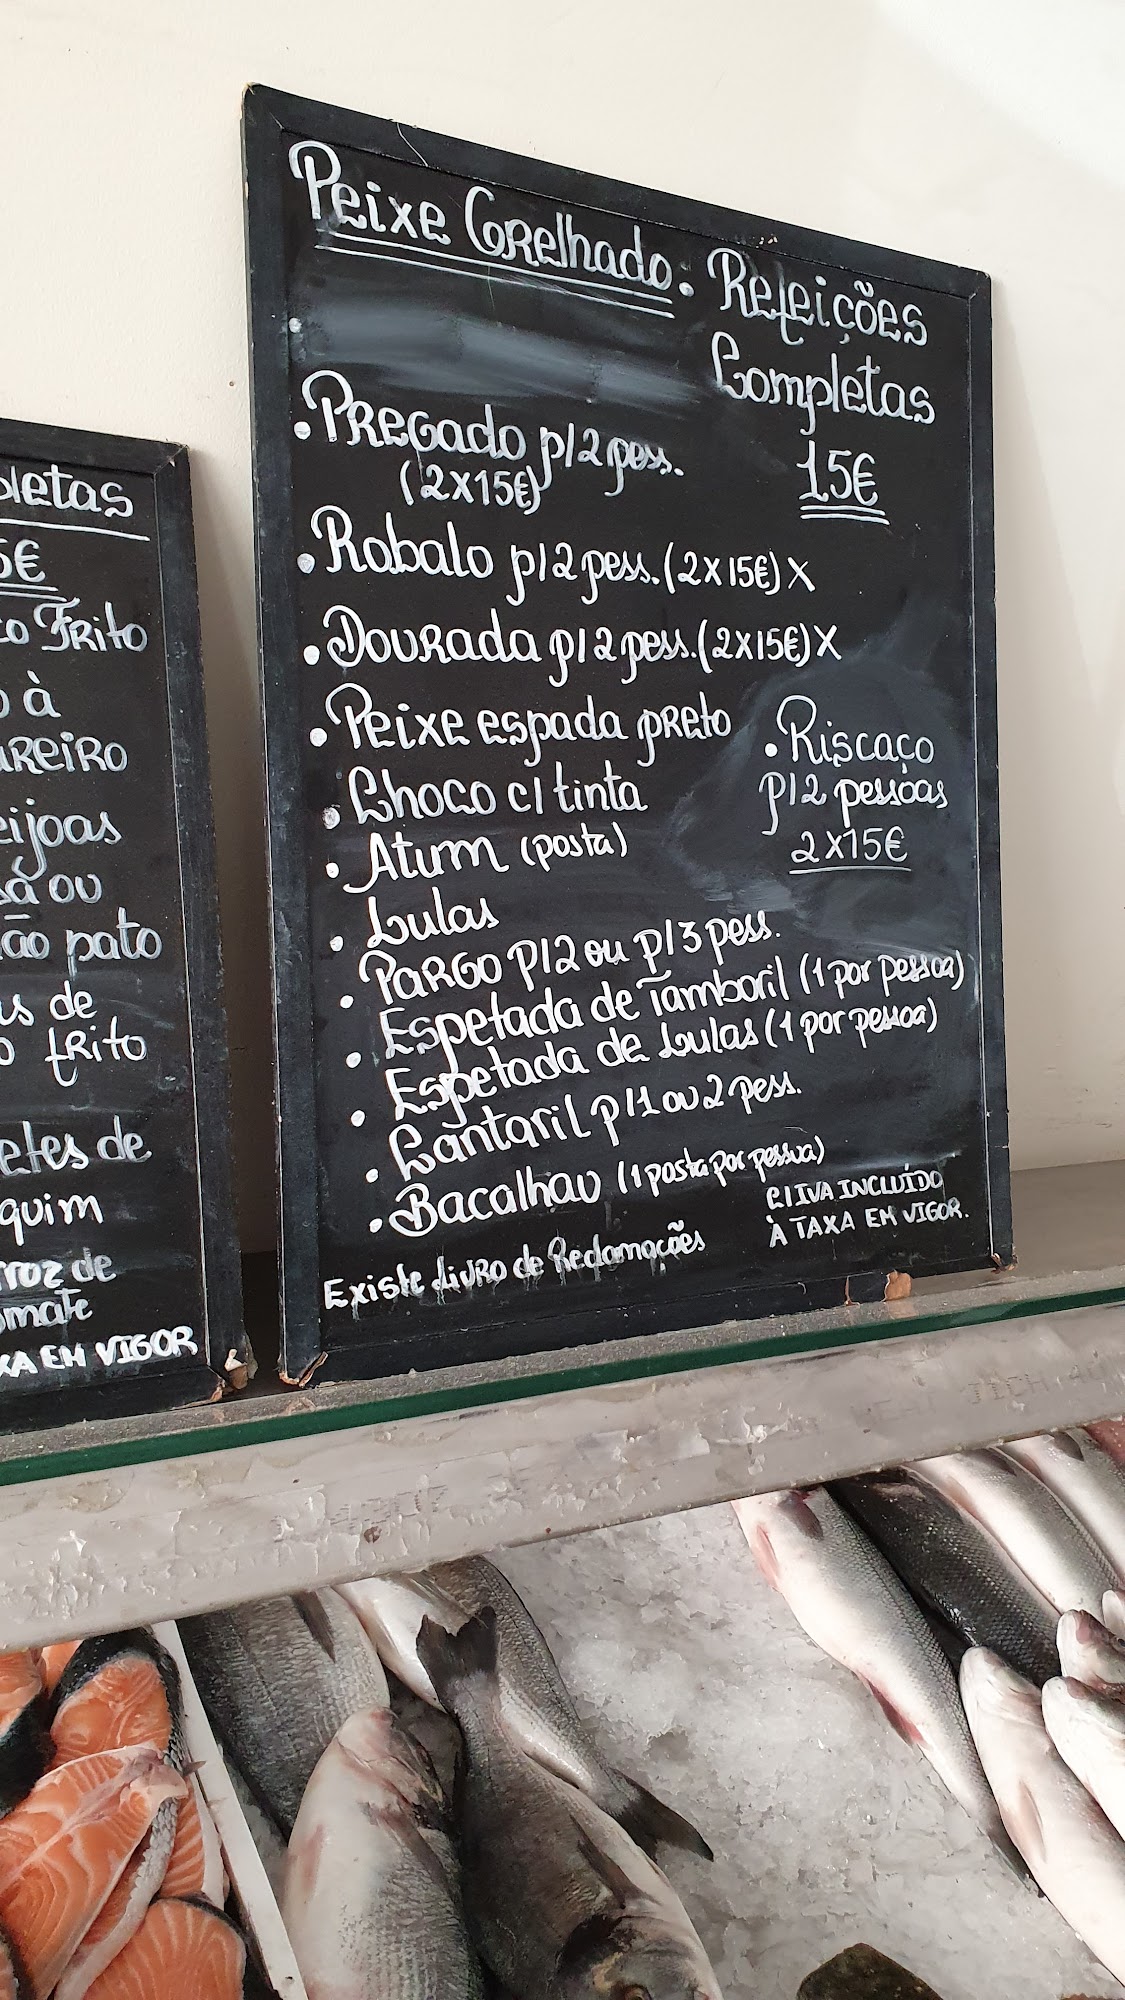 Peixe Grelhado. Refeições
Completas
15€
Pregado p/2 pess.
(2x15€)
Robalo p/2 pess. (2x15€) X
Dourada p/2 pess. (2x15€) X
Peixe espada preto
Choco c/ tinta
Atum (posta)
Lulas
Pargo p/2 ou p/3 pess.
Espetada de Tamboril (1 por pessoa)
Espetada de Lulas (1 por pessoa)
Cantaril p/1 ou 2 pess.
Bacalhau (1 posta por pessoa)
Riscaço
p/2 pessoas
2x15€
C/IVA INCLUÍDO
À TAXA EM VIGOR.
Existe Livro de Reclamações
pletas
5€
co Frito
o à
areiro
eijoas
sa ou
ão pato
as de
o frito
etes de
quim
rroz de
omate
XA EM VIGOR